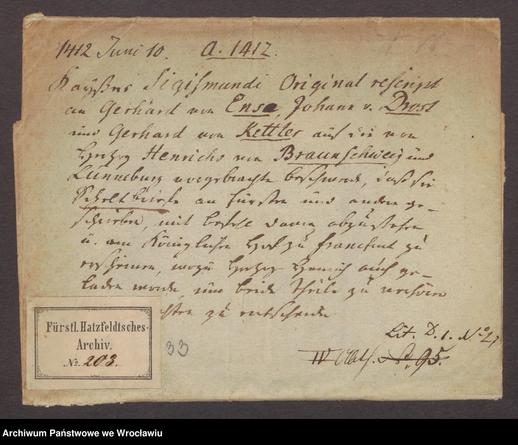 1412 Juni 10. A. 1412.
Kaysers Sigismundi Original rescript
an Gerhard von Ense, Johann v. Drost
und Gerhard von Kettler auf die von
Herzog Henrichs von Braunschweig und
Lünneburg vorgebrachte beschwerde, daß sie
Scheltbriefe an Fürsten und andere ge-
schrieben, mit befehl davon abzustehen
u. am Königlichen Hof zu
erscheinen, wozu Herzog Henrich auch ge-
laden worden, um beide Theile zu verhören
zu entscheiden
Lit. D. 1. No
95.
Fürstl. Hatzfeldtsches
Archiv.
No. 203.
33
Archiwum Państwowe we Wrocławiu